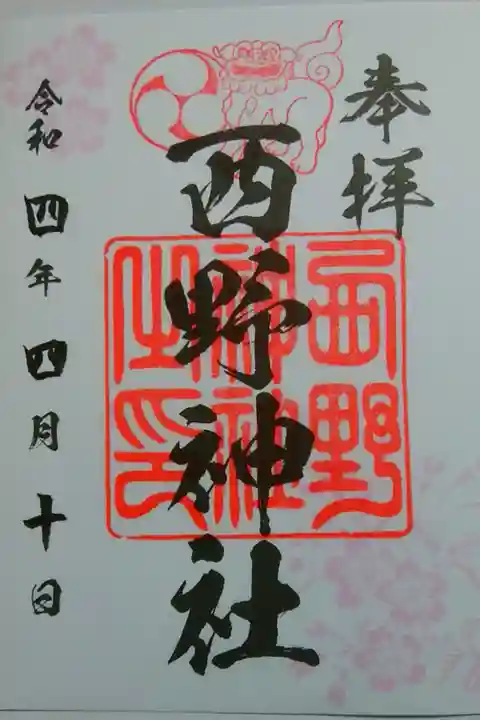 奉拝
西野神社
西野
神社
之印
令和四年四月十日